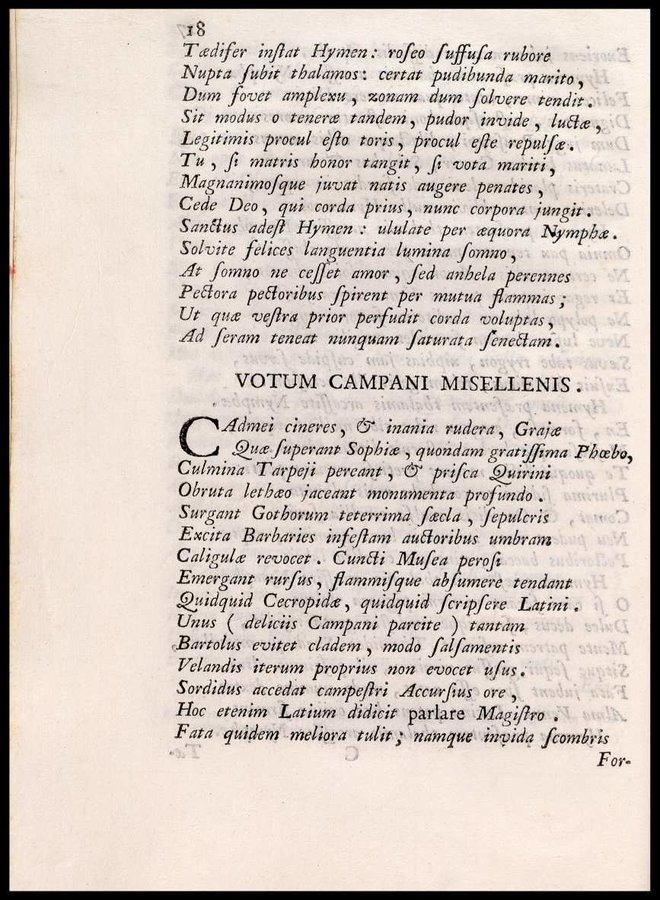 18
Tædifer inſtat Hymen: roſeo ſuffuſa rubore
Nupta ſubit thalamos: certat pudibunda marito,
Dum fovet amplexu, zonam dum ſolvere tendit.
Sit modus o teneræ tandem, pudor invide, luctæ,
Legitimis procul eſto toris, procul eſte repulſæ.
Tu, ſi matris honor tangit, ſi vota mariti,
Magnanimoſque juvat natis augere penates,
Cede Deo, qui corda prius, nunc corpora jungit.
Sanctus adeſt Hymen: ululate per æquora Nymphæ.
Solvite felices languentia lumina ſomno,
At ſomno ne ceſſet amor, ſed anhela perennes
Pectora pectoribus ſpirent per mutua flammas;
Ut quæ veſtra prior perfudit corda voluptas,
Ad ſeram teneat nunquam ſaturata ſenectam.
VOTUM CAMPANI MISELLENIS.
CAdmei cineres, & inania rudera, Grajæ
Quæ ſuperant Sophiæ, quondam gratiſſima Phœbo,
Culmina Tarpeji pereant, & priſca Quirini
Obruta lethæo jaceant monumenta profundo.
Surgant Gothorum teterrima ſæcla, ſepulcris
Excita Barbaries infeſtam auctoribus umbram
Caligulæ revocet. Cuncti Muſea peroſi
Emergant rurſus, flammiſque abſumere tendant
Quidquid Cecropidæ, quidquid ſcripſere Latini.
Unus (deliciis Campani parcite) tantam
Bartolus evitet cladem, modo ſalſamentis
Velandis iterum proprius non evocet uſus.
Sordidus accedat campeſtri Accurſius ore,
Hoc etenim Latium didicit parlare Magiſtro.
Fata quidem meliora tulit; namque invida ſcombris
For-